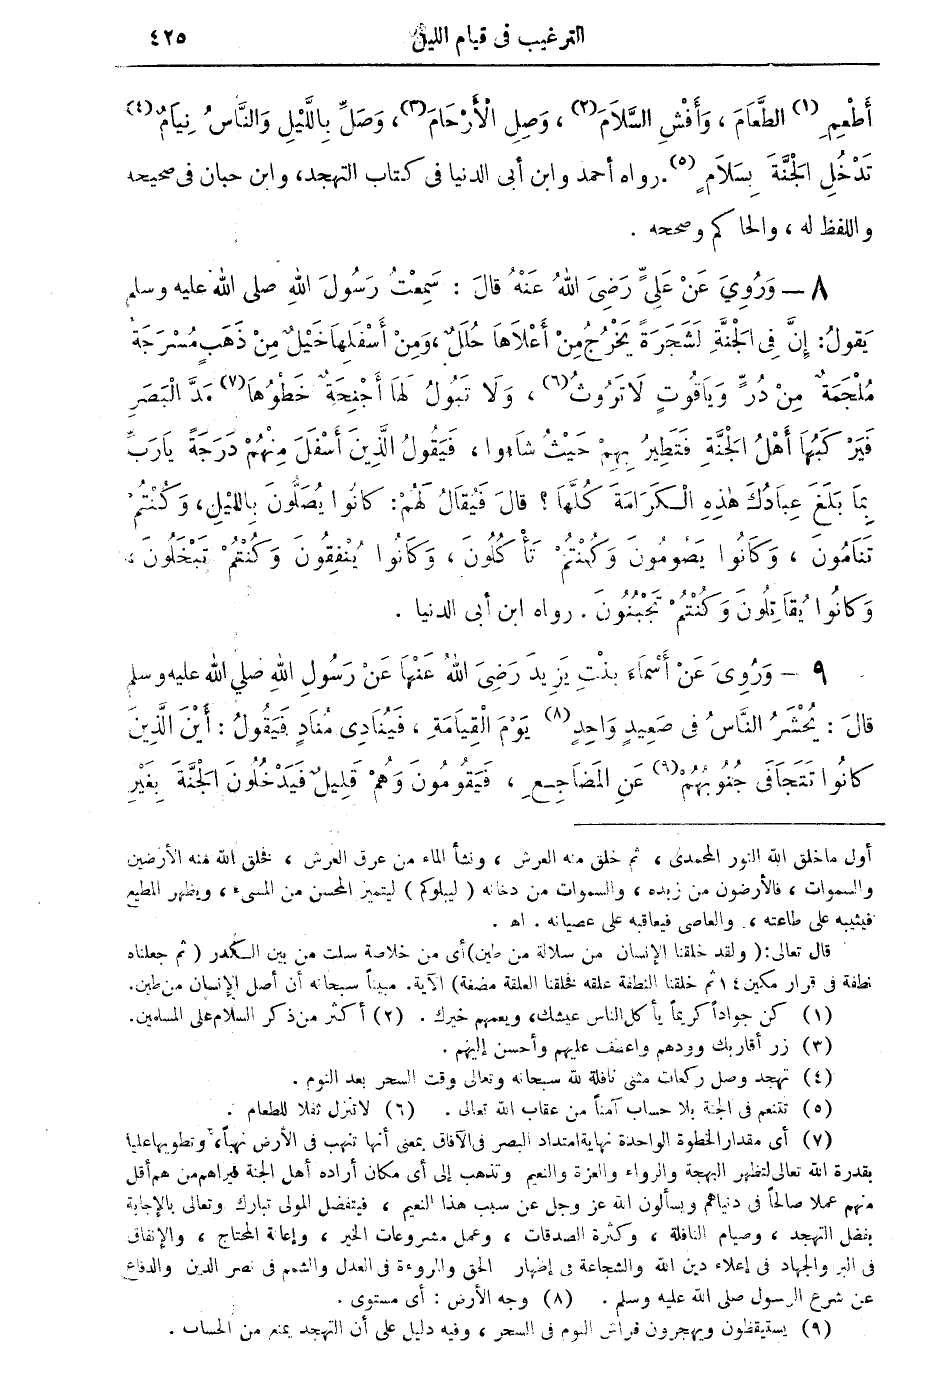 الترغيب فى قيام الليل ٤٢٥
أَطْعِمِ (١) الطَّعَامَ ، وَأَفْشِ السَّلَامَ (٢) ، وَصِلِ الْأَرْحَامَ (٣)، وَصَلِّ بِاللَّيْلِ وَالنَّاسُ نِيَامٌ (٤)
تَدْخُلِ الْجَنَّةَ بِسَلَامٍ (٥). رواه أحمد وابن أبى الدنيا فى كتاب التهجد، وابن حبان فى صحيحه
واللفظ له ، والحاكم وصححه .
٨ — وَرُوِيَ عَنْ عَلِيٍّ رَضِيَ اللهُ عَنْهُ قالَ : سَمِعْتُ رَسُولَ اللهِ صلى الله عليه وسلم
يَقولُ: إِنَّ فِى الْجَنَّةِ لَشَجَرَةً يَخْرُجُ مِنْ أَعْلَاهَا حُلَلٌ ، وَمِنْ أَسْفَلِهَا خَيْلٌ مِنْ ذَهَبٍ مُسْرَجَةٌ
مُلْجَمَةٌ مِنْ دُرٍّ وَيَاقُوتٍ لَا تَرُوثُ (٦) ، وَلَا تَبُولُ لَهَا أَجْنِحَةٌ خَطْوُهَا (٧) مَدَّ الْبَصَرِ
فَيَرْكَبُهَا أَهْلُ الْجَنَّةِ فَتَطِيرُ بِهِمْ حَيْثُ شَاءوا ، فَيَقُولُ الَّذِينَ أَسْفَلَ مِنْهُمْ دَرَجَةً يا رَبِّ
بِمَا بَلَغَ عِبَادُكَ هٰذِهِ الْكَرَامَةَ كُلَّهَا ؟ قالَ فَيُقَالُ لَهُمْ: كانُوا يُصَلُّونَ بِاللَّيْلِ، وَكُنْتُمْ
تَنَامُونَ ، وَكَانُوا يَصُومُونَ وَكُنْتُمْ تَأْكُلُونَ ، وَكَانُوا يُنْفِقُونَ وَكُنْتُمْ تَبْخَلُونَ ،
وَكانُوا يُقَاتِلُونَ وَكُنْتُمْ تَجْبُنُونَ . رواه ابن أبى الدنيا .
٩ — وَرُوِىَ عَنْ أَسْمَاءَ بِنْتِ يَزِيدَ رَضِيَ اللهُ عَنْهَا عَنْ رَسُولِ اللهِ صلى الله عليه وسلم
قالَ : يُحْشَرُ النَّاسُ فى صَعِيدٍ وَاحِدٍ (٨) يَوْمَ الْقِيَامَةِ ، فَيُنَادِى مُنَادٍ فَيَقُولُ : أَيْنَ الَّذِينَ
كانُوا تَتَجَافَى جُنُوبُهُمْ (٩) عَنِ الْمَضَاجِعِ ، فَيَقُومُونَ وَهُمْ قَلِيلٌ فَيَدْخُلُونَ الْجَنَّةَ بِغَيْرِ
أول ما خلق الله النور المحمدى ، ثم خلق منه العرش ، ونشأ الماء من عرق العرش ، فخلق الله منه الأرضين
والسموات ، فالأرضون من زبده ، والسموات من دخانه ( ليبلوكم ) ليتميز المحسن من المسىء ، ويظهر المطيع
فيثيبه على طاعته ، والعاصى فيعاقبه على عصيانه . اه .
قال تعالى: ( ولقد خلقنا الإنسان من سلالة من طين) أى من خلاصة سلت من بين الكدر ( ثم جعلناه
نطفة فى قرار مكين ١٤ ثم خلقنا النطفة علقه فخلقنا العلقة مضغة) الآية. مبيناً سبحانه أن أصل الإنسان من طين.
(١) كن جواداً كريماً يأكل الناس عيشك، ويعمهم خيرك . (٢) أكثر من ذكر السلام على المسلمين.
(٣) زر أقاربك وودهم واعطف عليهم وأحسن إليهم .
(٤) تهجد وصل ركعات مثنى نافلة لله سبحانه وتعالى وقت السحر بعد النوم .
(٥) تتنعم فى الجنة بلا حساب آمناً من عقاب الله تعالى . (٦) لا تنزل ثفلا للطعام .
(٧) أى مقدار الخطوة الواحدة نهاية امتداد البصر فى الآفاق بمعنى أنها تنهب فى الأرض نهباً ، وتطويها طيا
بقدرة الله تعالى لتظهر البهجة والرواء والعزة والنعيم وتذهب إلى أى مكان أراده أهل الجنة فيراهم من هم أقل
منهم عملا صالحاً فى دنياهم ويسألون الله عز وجل عن سبب هذا النعيم ، فيتفضل المولى تبارك وتعالى بالإجابة
بفضل التهجد ، وصيام النافلة ، وكثرة الصدقات ، وعمل مشروعات الخير ، وإعانة المحتاج ، والإنفاق
فى البر والجهاد فى إعلاء دين الله والشجاعة فى إظهار الحق والمروءة فى العدل والشمم فى نصر الدين والدفاع
عن شرع الرسول صلى الله عليه وسلم . (٨) وجه الأرض : أى مستوى .
(٩) يستيقظون ويهجرون فراش النوم فى السحر ، وفيه دليل على أن التهجد يمنع من الحساب .